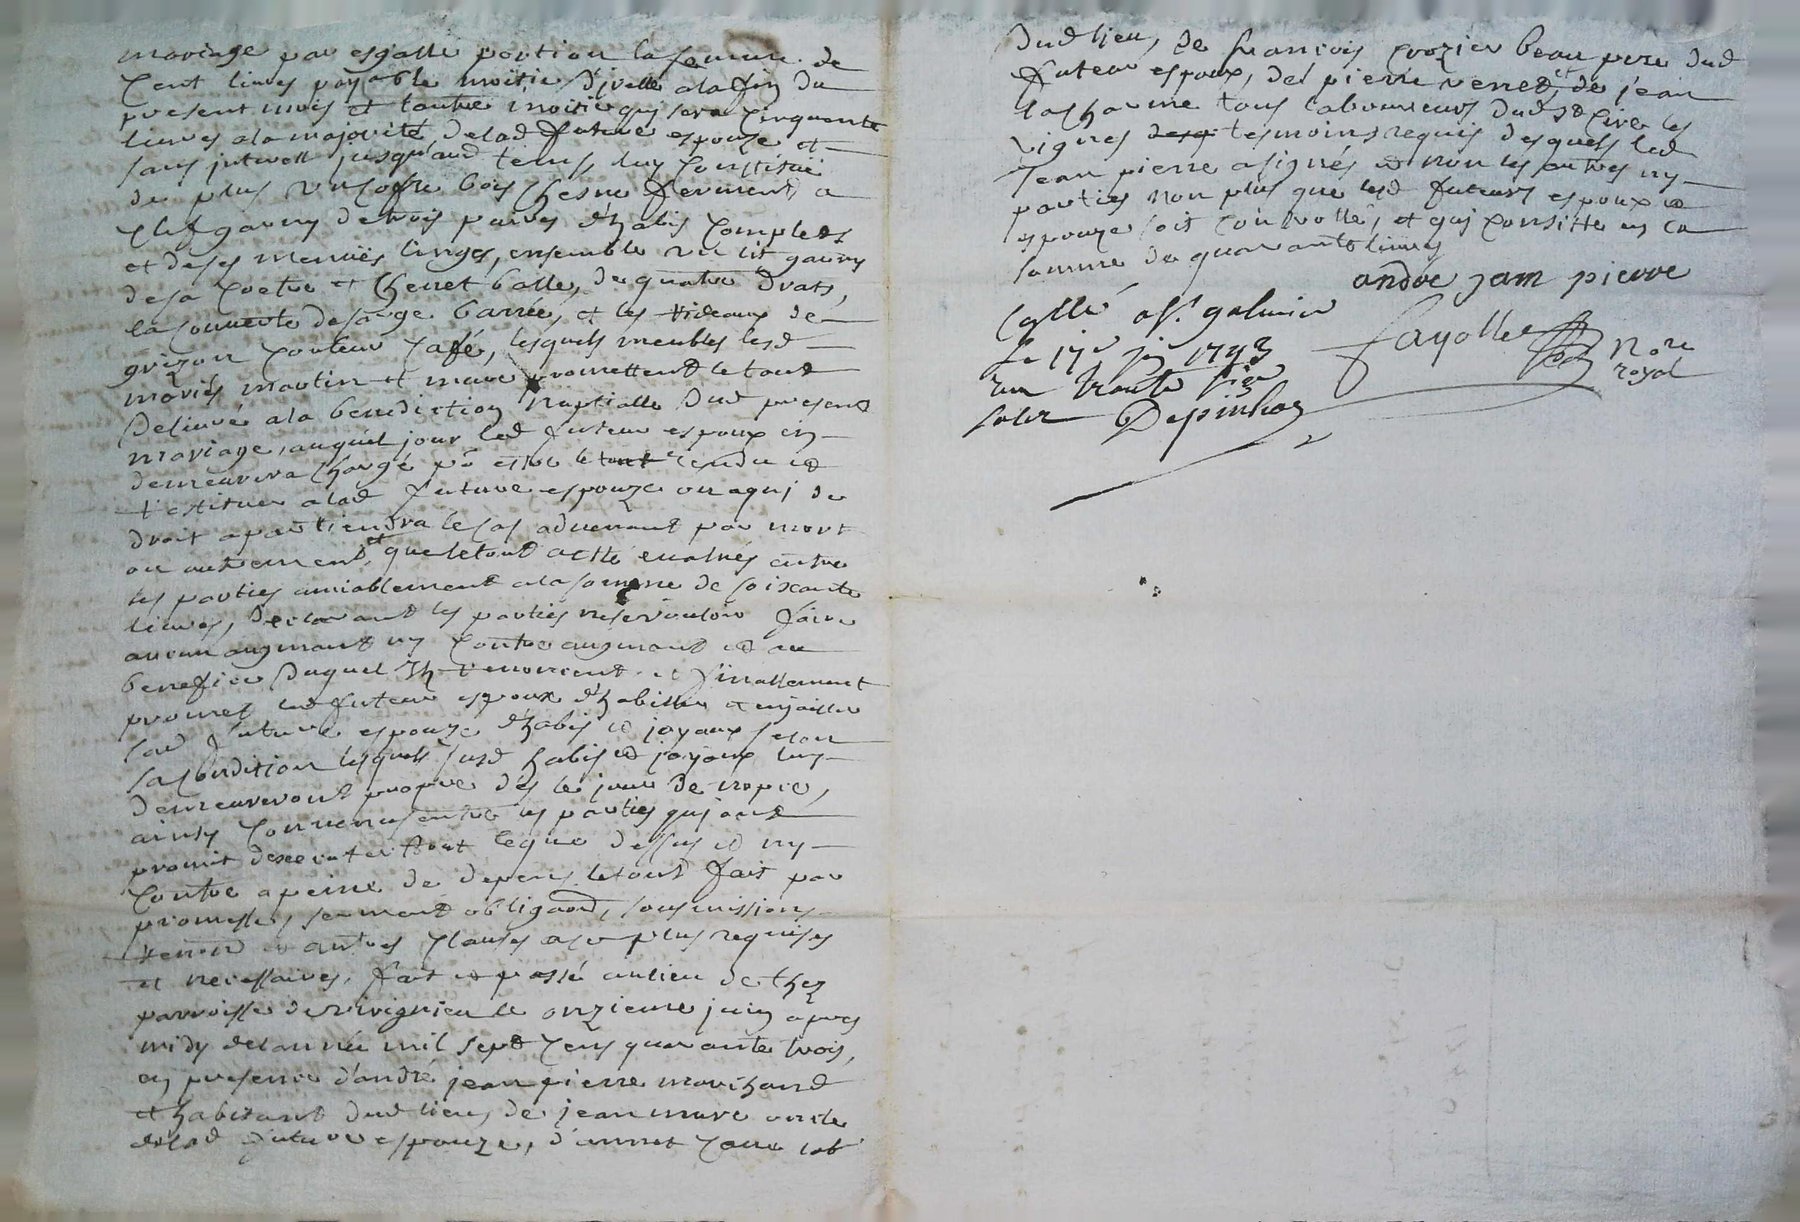 mariage par esgalle portion la somme de
Cent livres payable moitié d'jcelle a la fin du
present mois et lautre moitié quj sera Cinquante
livres a la majorité de lad future espouze et
sans jnterest jusqu'aud tems, luy Constitüe
de plus un Coffre bois Chesne fermant a
Clef garny de trois paires d'habis Complets
et de ses menuës linges, ensemble un lit garny
de sa Coetre et Chevet balle, de quatre draps,
la Couverte de sarge barrée, et les rideaux de
grizon Couleur Caffé, lesquels meubles lesd
mariés martin et mure promettent le tout
Delivré a la benediction Nuptialle Dud present
mariage, auquel jour led futeur espoux en
demeurera Chargé pr estre le tout rendu et
restitué a lad future espouze ou a quj de
droit apartiendra le Cas advenant par mort
ou autrement, et que le tout a esté evalués entre
les parties amiablement a la somme de soixante
livres, declarant les parties ne se vouloir faire
aucun augmant ny Contre augmant et au
benefice Duquel Ils renoncent et finallement
promet led futeur espoux d'habiller et enjoailler
sad future espouze d'habis et joyaux selon
sa Condition lesquels susd habis et joyaux luy
demeureront propre des le jour de nopce,
ainsy Convenu entre les parties quj ont
promit d'executer tout ce que dessus et ny
Contre a peine de depens le tout fait par
promesses, serment obligaõn, soumissions
renon et autres Clauses a ce plus requises
et necessaires. fait et passé au lieu de Chez
parroisse de virignieu le onzieme juin apres
midy de lannée mil sept Cens quarante trois,
en presence d'andré jean pierre marchand
et habitant dud lieu, de jean mure oncle
de lad future espouze, d'annet lab
Dud lieu, de françois Crozier beau pere dud
futeur espoux, de pierre venet, et de jean
lascharme tous laboureurs dud St Cire les
vignes tesmoins requis desquels led
Jean pierre a signés et non les autres ny
parties non plus que lesd futeurs espoux et
espouze soit Con volle, et quj Consiste en la
somme de quarante livres
andre jam pierre
Collé a St galmier
Le 17e jin 1743
Fayolle Nore
royal
Depinhac